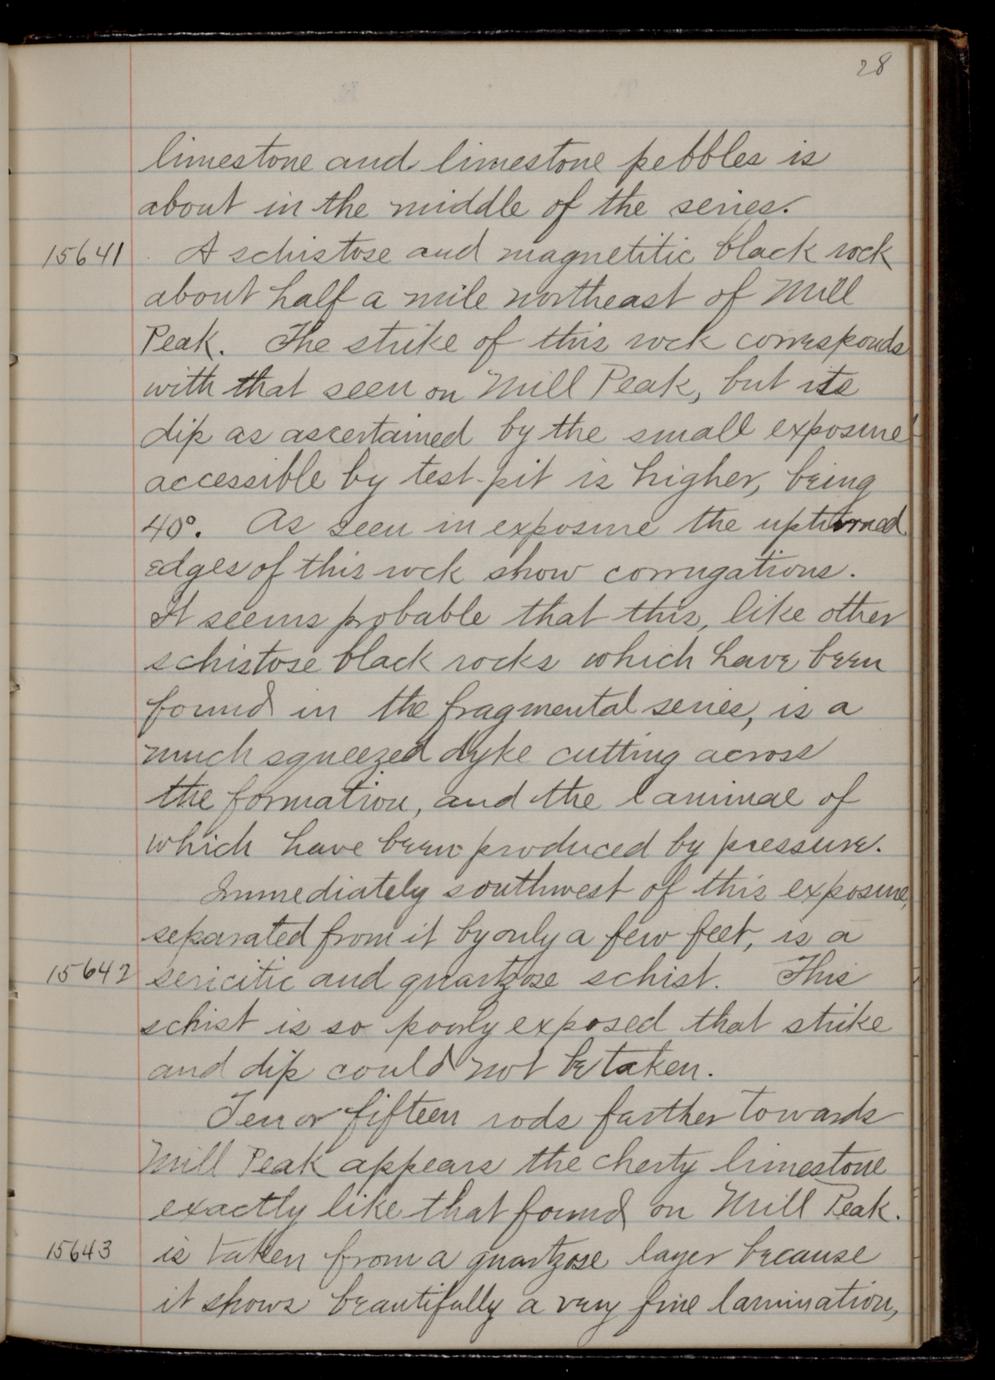 28
limestone and limestone pebbles is
about in the middle of the series.
15641 A schistose and magnetitic black rock
about half a mile northeast of Mill
Peak. The strike of this rock corresponds
with that seen on Mill Peak, but its
dip as ascertained by the small exposure
accessible by test-pit is higher, being
40°. As seen in exposure the upturned
edges of this rock show corrugations.
It seems probable that this, like other
schistose black rocks which have been
found in the fragmental series, is a
much squeezed dyke cutting across
the formation, and the laminae of
which have been produced by pressure.
Immediately southwest of this exposure,
separated from it by only a few feet, is a
15642 sericitic and quartzose schist. This
schist is so poorly exposed that strike
and dip could not be taken.
Ten or fifteen rods farther towards
Mill Peak appears the cherty limestone
exactly like that found on Mill Peak.
15643 is taken from a quartzose layer because
it shows beautifully a very fine lamination,